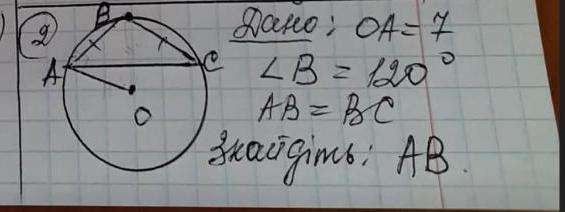 2
B
A
C
O
Дано: OA = 7
∠B = 120°
AB = BC
Знайдіть: AB.